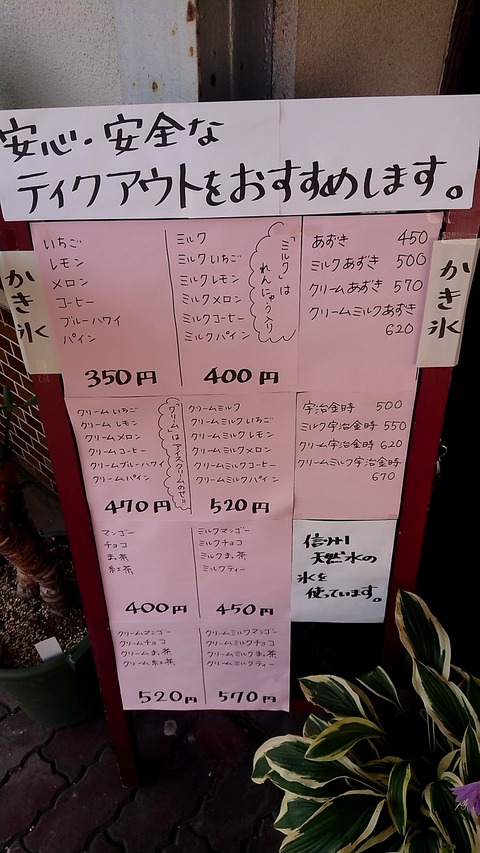 安心・安全な
テイクアウトをおすすめします。
かき氷
いちご
レモン
メロン
コーヒー
ブルーハワイ
パイン
350円
ミルク
ミルクいちご
ミルクレモン
ミルクメロン
ミルクコーヒー
ミルクパイン
400円
「ミルク」は
れんにゅう入り
あずき 450
ミルクあずき 500
クリームあずき 570
クリームミルクあずき
620
かき氷
クリームいちご
クリームレモン
クリームメロン
クリームコーヒー
クリームブルーハワイ
クリームパイン
470円
「クリーム」はアイスクリームのせ!!
クリームミルク
クリームミルクいちご
クリームミルクレモン
クリームミルクメロン
クリームミルクコーヒー
クリームミルクパイン
520円
宇治金時 500
ミルク宇治金時 550
クリーム宇治金時 620
クリームミルク宇治金時
670
マンゴー
チョコ
まっ茶
紅茶
400円
ミルクマンゴー
ミルクチョコ
ミルクまっ茶
ミルクティー
450円
信州
天然水の
氷を
使っています。
クリームマンゴー
クリームチョコ
クリームまっ茶
クリーム紅茶
520円
クリームミルクマンゴー
クリームミルクチョコ
クリームミルクまっ茶
クリームミルクティー
570円